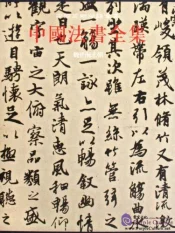 中國法書全集
領茂林脩竹又有清流激
暎帶左右引以為流觴曲
列坐其次雖無絲竹管弦之
盛一觴一詠亦足以暢敘幽情
是日也天朗氣清惠風和暢仰
觀宇宙之大俯察品類之盛
以遊目騁懷足以極視聽之